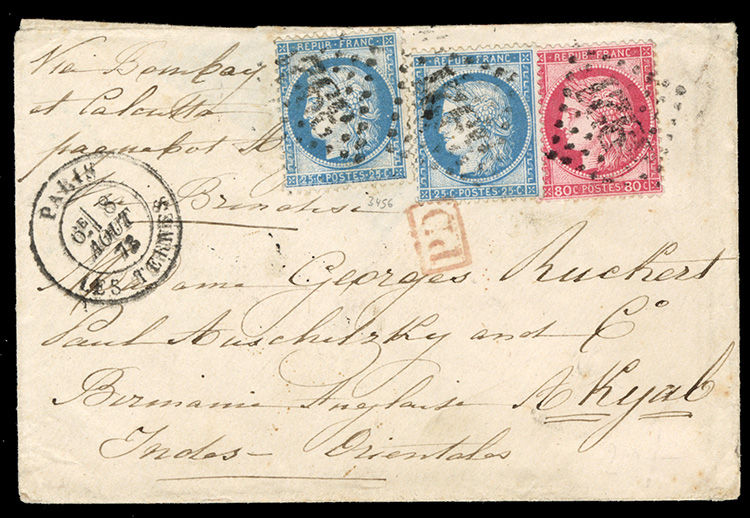 Via Bombay
et Calcutta
paquebot
Brindisi
REPUB. FRANC.
25 C. POSTES. 25 C.
REPUB. FRANC.
25 C. POSTES. 25 C.
REPUB. FRANC.
80 C. POSTES. 80 C.
3456
PD
PARIS
6E
8
AOUT
73
LES TERNES
Madame Georges Ruckert
Paul Auschitzky and Co
Birmanie Anglaise Akyab
Indes-Orientales